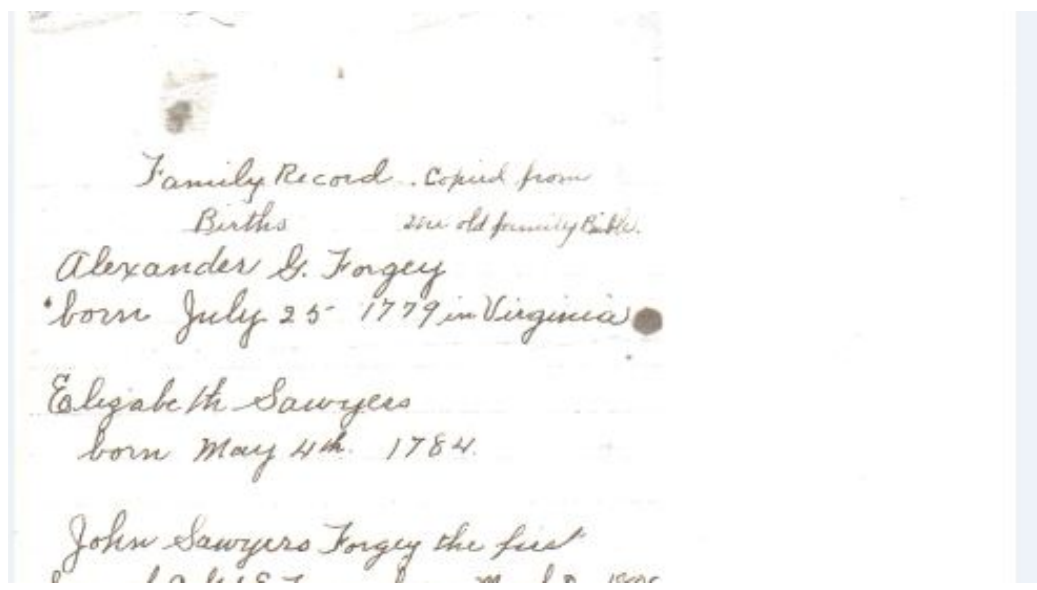 Family Record. Copied from
Births the old family Bible.
Alexander G. Forgey
born July 25 1779 in Virginia
Elizabeth Sawyers
born May 4th. 1784.
John Sawyers Forgey the first